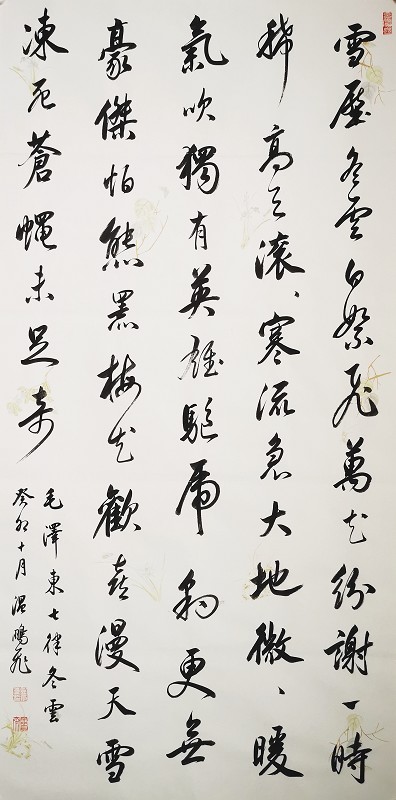 雪壓冬雲白絮飛萬花紛謝一時
稀高天滚、寒流急大地微、暖
氣吹獨有英雄驅虎豹更無
豪傑怕熊罴梅花歡喜漫天雪
凍死蒼蠅未足奇
毛澤東七律冬雲
癸卯十月温鵬飛